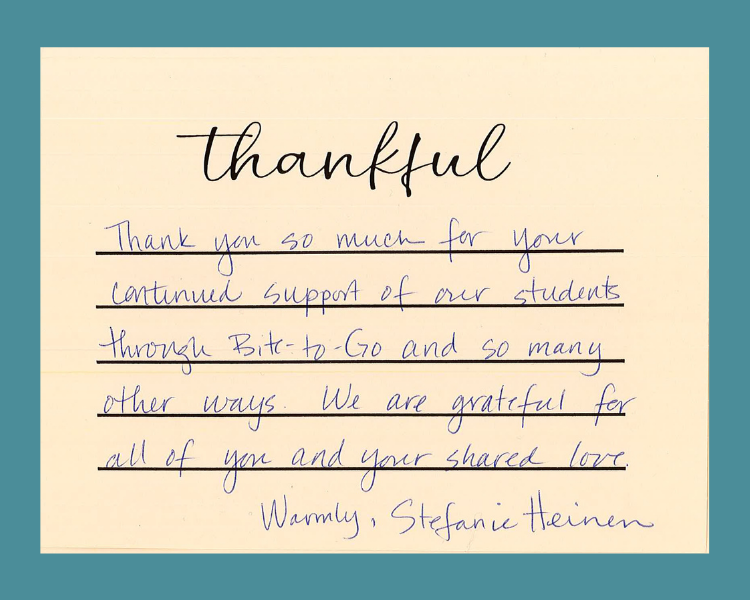 thankful
Thank you so much for your
continued support of our students
through Bite-to-Go and so many
other ways. We are grateful for
all of you and your shared love.
Warmly, Stefanie Heinen